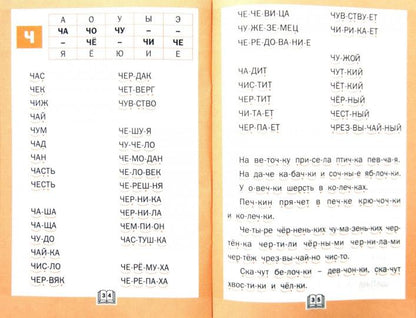 Ч
А О У Ы Э
ЧА ЧО ЧУ – –
– ЧЁ – ЧИ ЧЕ
Я Ё Ю И Е
ЧАС
ЧЕК
ЧИЖ
ЧАЙ
ЧУМ
ЧАД
ЧАН
ЧАСТЬ
ЧЕСТЬ
ЧА-ША
ЧА-ЩА
ЧУ-ДО
ЧАЙ-КА
ЧИС-ЛО
ЧЕР-ВЯК
ЧЕР-ДАК
ЧЕТ-ВЕРГ
ЧУВ-СТВО
ЧЕ-ШУ-Я
ЧУ-ЧЕ-ЛО
ЧЕ-МО-ДАН
ЧЕ-ЛО-ВЕК
ЧЕ-РЕШ-НЯ
ЧЕР-НИ-КА
ЧЕР-НИ-ЛА
ЧЕМ-ПИ-ОН
ЧАС-ТУШ-КА
ЧЕ-РЁ-МУ-ХА
ЧЕ-РЕ-ПА-ХА
34
ЧЕ-ЧЕ-ВИ-ЦА
ЧУ-ЖЕ-ЗЕ-МЕЦ
ЧЕ-РЕ-ДО-ВА-НИ-Е
ЧУВ-СТВУ-ЕТ
ЧИ-РИ-КА-ЕТ
ЧА-ДИТ
ЧИС-ТИТ
ЧЕР-ТИТ
ЧИ-ТА-ЕТ
ЧЕР-ПА-ЕТ
ЧУ-ЖОЙ
ЧУТ-КИЙ
ЧЁТ-КИЙ
ЧЁР-НЫЙ
ЧЕСТ-НЫЙ
ЧРЕЗ-ВЫ-ЧАЙ-НЫЙ
На ве-точ-ку при-се-ла птич-ка пев-ча-я.
На да-че ка-бач-ки и соч-ны-е яб-лоч-ки.
У о-веч-ки шерсть в ко-леч-ках.
Печ-кин пря-чет в печ-ке круж-оч-ки и
крюч-ки.
Че-ты-ре чёр-нень-ких чу-ма-зень-ких чер-
тён-ка чер-ти-ли чёр-ны-ми чер-ни-ла-ми
чер-тёж чрез-вы-чай-но чис-то.
Ска-чут бе-лоч-ки – дев-чон-ки, ска-чут
хвос-ти-ки и чёл-ки.
35